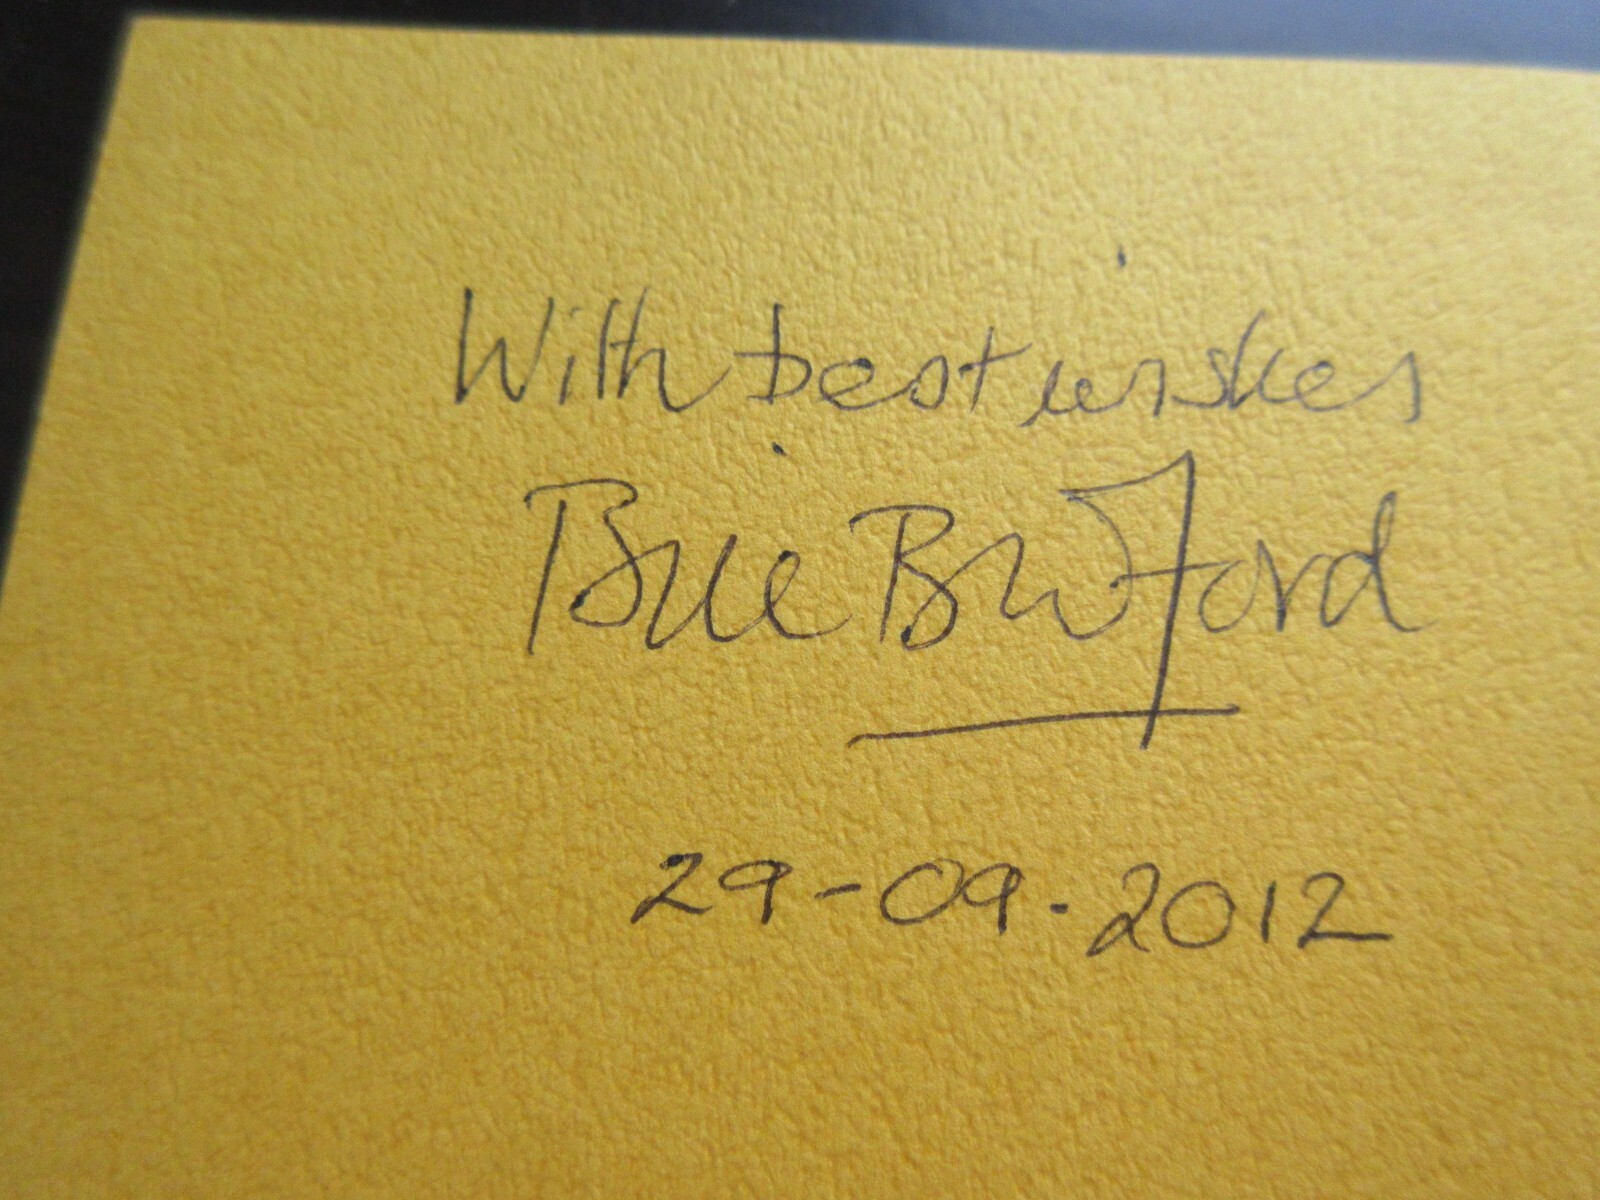 With best wishes
Bill Bruford
29-09-2012